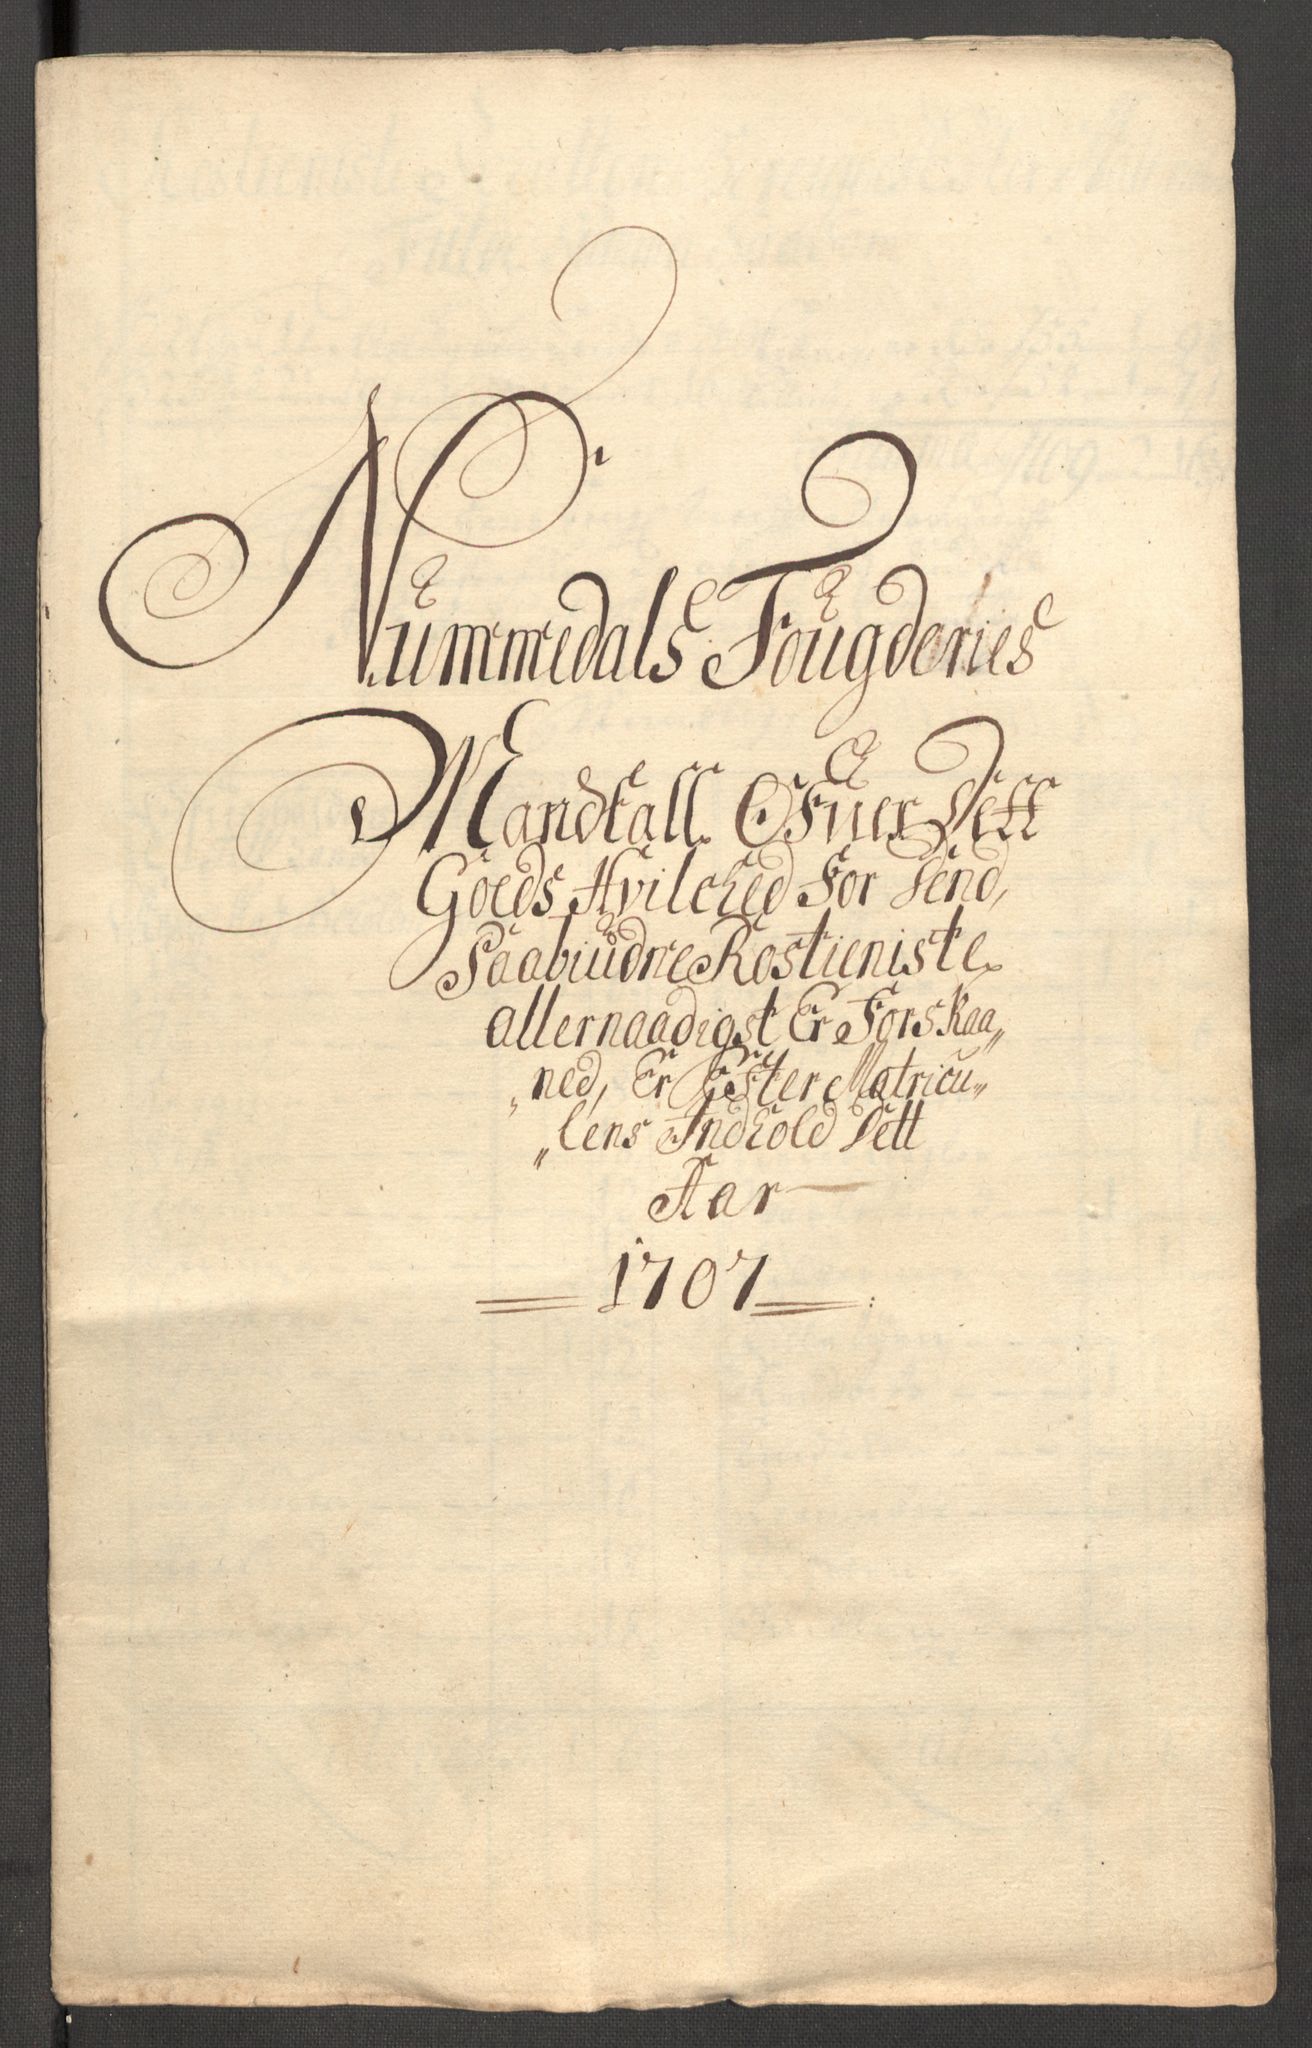 Nummedals Fougderies
Mandtall Ofver Dett
Goeds Hvilched For Dend,
Paabiudne Rostieniste
allernaadigst Er Forskaa„
„ned, Er Efter Matricu„
„lens Indhold Dett
Aar
1707